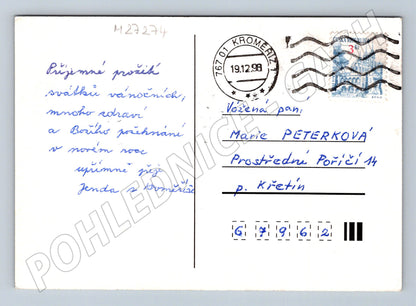 M27274
767 01 KROMĚŘÍŽ 1
19.12.98
3
Příjemné prožití
svátků vánočních,
mnoho zdraví
a Božího požehnání
v novém roce
upřímně přeje
Jenda z Kroměříže
Vážená paní,
Marie PETERKOVÁ
Prostřední Poříčí 14
p. Křetín
67962
POHLEDNICE